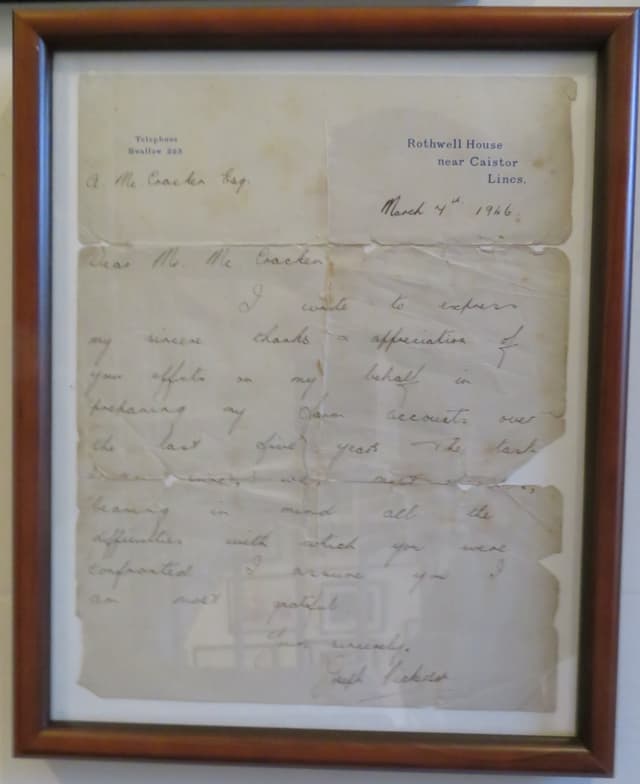 Telephone
Swallow
Rothwell House
near Caistor
Lincs.
A. Mc Cracken Esq.
March 4th 1946.
Dear Mr. Mc Cracken
I write to express
my sincere thanks & appreciation of
your efforts on my behalf in
preparing my accounts over
the last five years The task
bearing in mind all the
difficulties with which you were
confronted I assure you I
am most grateful
Yours sincerely,
Joseph